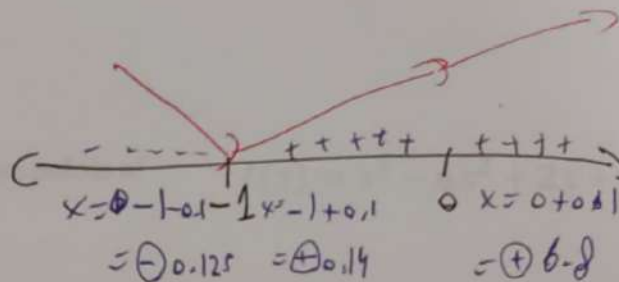 - - - - - + + + + + + + +
x=0-1-0.1 -1 x=-1+0.1 0 x=0+0.1
=⊖0.125 =⊕0.14 =⊕6.8